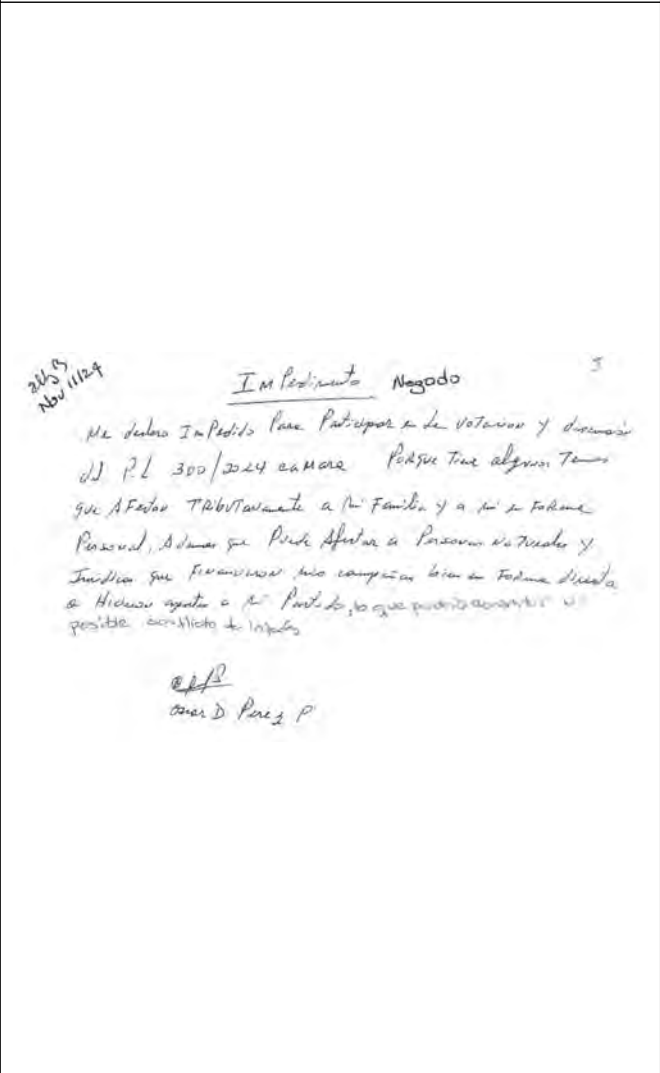 Nov 11/24
3
Impedimento Negado
Me declaro Impedido Para Participar en la votacion y discusión
del P.L 300/2024 camara Porque Tiene algunos Temas
que Afectan TRibuTariamente a mi Familia y a mi en Forma
Personal, Ademas que Puede Afectar a Personas NaTurales y
Juridicas que Financiaron mis campañas bien en Forma directa
o Hicieron aportes a mi Partido, lo que podría constituir un
posible conflicto de interés
Oscar D Perez P